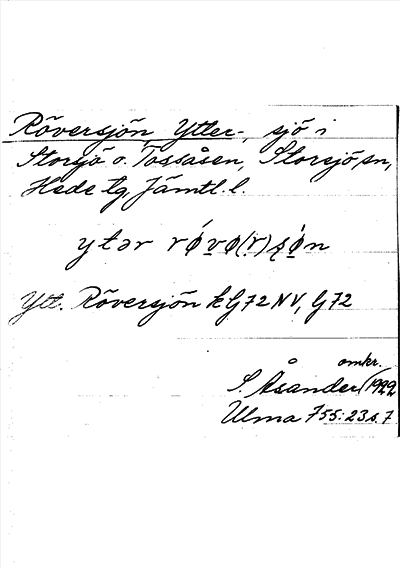 Röversjön Ytter-, sjö i
Storsjö o. Tossåsen, Storsjö sn,
Hede tg, Jämtl. l.
ytər rǿvo(r)şǿn
Ytt. Röversjön kG72NV, G72
omkr.
S. Åsander (1922
Ulma 755:23 s. 7